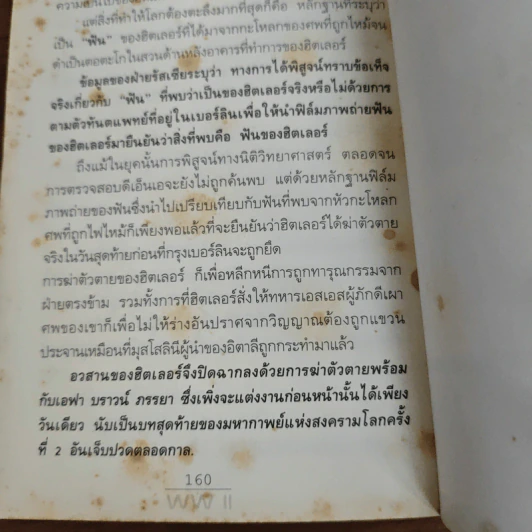 ความตายของ
แต่สิ่งที่ทำให้โลกต้องตะลึงมากที่สุดก็คือ หลักฐานที่ระบุว่า
เป็น "ฟัน" ของฮิตเลอร์ที่ได้มาจากกะโหลกของศพที่ถูกไหม้จน
ดำเป็นตอตะโกในสวนด้านหลังอาคารที่ทำการของฮิตเลอร์
ข้อมูลของฝ่ายรัสเซียระบุว่า ทางการได้พิสูจน์ทราบข้อเท็จ
จริงเกี่ยวกับ "ฟัน" ที่พบว่าเป็นของฮิตเลอร์จริงหรือไม่ด้วยการ
ตามตัวทันตแพทย์ที่อยู่ในเบอร์ลินเพื่อให้นำฟิล์มภาพถ่ายฟัน
ของฮิตเลอร์มายืนยันว่าสิ่งที่พบคือ ฟันของฮิตเลอร์
ถึงแม้ในยุคนั้นการพิสูจน์ทางนิติวิทยาศาสตร์ ตลอดจน
การตรวจสอบดีเอ็นเอจะยังไม่ถูกค้นพบ แต่ด้วยหลักฐานฟิล์ม
ภาพถ่ายของฟันซึ่งนำไปเปรียบเทียบกับฟันที่พบจากหัวกะโหลก
ศพที่ถูกไฟไหม้ก็เพียงพอแล้วที่จะยืนยันว่าฮิตเลอร์ได้ฆ่าตัวตาย
จริงในวันสุดท้ายก่อนที่กรุงเบอร์ลินจะถูกยึด
การฆ่าตัวตายของฮิตเลอร์ ก็เพื่อหลีกหนีการถูกทารุณกรรมจาก
ฝ่ายตรงข้าม รวมทั้งการที่ฮิตเลอร์สั่งให้ทหารเอสเอสผู้ภักดีเผา
ศพของเขาก็เพื่อไม่ให้ร่างอันปราศจากวิญญาณต้องถูกแขวน
ประจานเหมือนที่มุสโสลินีผู้นำของอิตาลีถูกกระทำมาแล้ว
อวสานของฮิตเลอร์จึงปิดฉากลงด้วยการฆ่าตัวตายพร้อม
กับเอฟา บราวน์ ภรรยา ซึ่งเพิ่งจะแต่งงานก่อนหน้านั้นได้เพียง
วันเดียว นับเป็นบทสุดท้ายของมหากาพย์แห่งสงครามโลกครั้ง
ที่ 2 อันเจ็บปวดตลอดกาล.
160
WW II